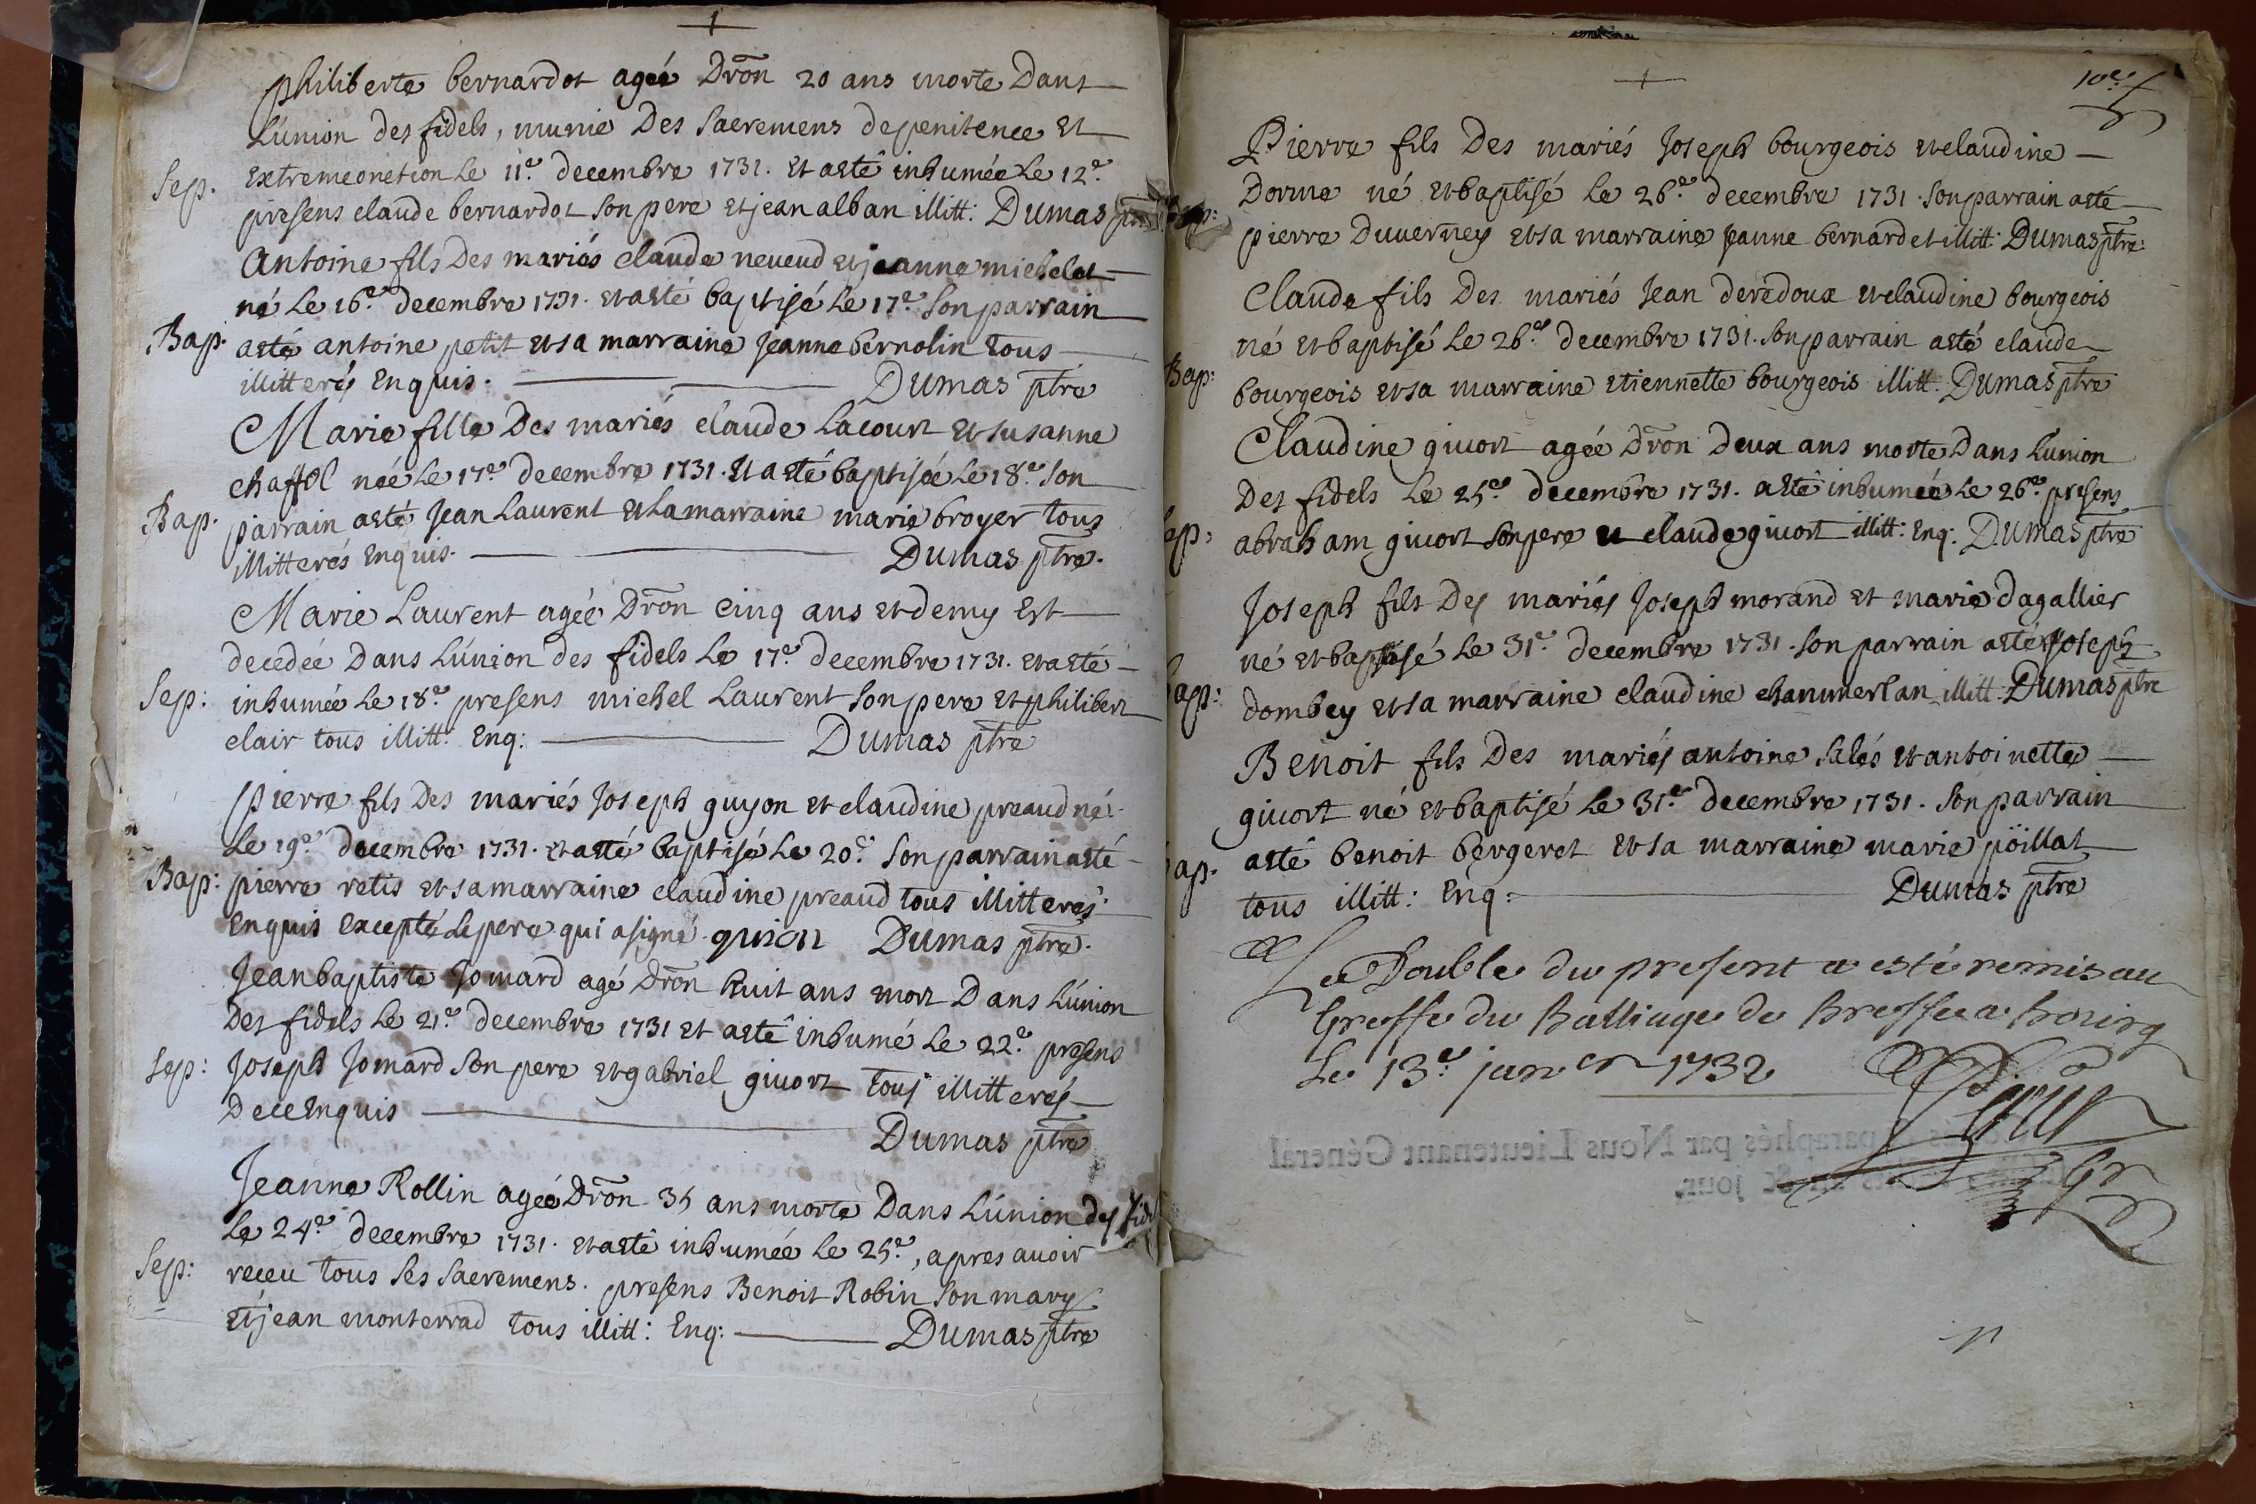 philiberte bernardot ageé Dron 20 ans morte Dans
Lúnion des fidels, munie Des Sacremens de penitence Et
Sep. Extremeonction Le 11e decembre 1731. Et a esté inhumée Le 12e
presens claude bernardot Son pere et jean alban illitt: Dumas ptre
Antoine fils Des mariés claude neveud et jeanne michelet
né Le 16e decembre 1731. et a esté baptisé Le 17e Son parrain
Bap. a esté antoine petit et sa marraine Jeanne bernolin tous
illitterés Enquis. Dumas ptre
Marie fille Des mariés claude Lacourt et susanne
chaffol née Le 17e decembre 1731. Et a esté baptisée Le 18e Son
Bap. parrain a esté Jean Laurent et La marraine marie broyer tous
illitterés Enquis. Dumas ptre.
Marie Laurent agée Dron cinq ans et demy Est
decedée Dans Lúnion des fidels Le 17e decembre 1731. et a esté
Sep: inhumée Le 18e presens michel Laurent Son pere et philibert
clair tous illitt: Enq: Dumas ptre
Pierre fils Des mariés Joseph guyon et claudine preaud né
Le 19e decembre 1731. et a esté baptisé Le 20e Son parrain a esté
Bap: pierre retis et sa marraine claudine preaud tous illitterés
Enquis Excepté Le pere qui a signé. guion Dumas ptre.
Jean baptiste Jomard agé Dron huit ans mort Dans Lúnion
Des fidels Le 21e decembre 1731 et a esté inhumé Le 22e presens
Sep: Joseph Jomard Son pere et gabriel givort tous illitterés
De ce Enquis
Dumas ptre
Jeanne Rollin agée Dron 35 ans morte Dans Lúnion des
Le 24e decembre 1731. et a esté inhumée Le 25e, apres avoir
Sep: receu tous Ses Sacremens. presens Benoit Robin Son mary
Et jean monterrad tous illitt: Enq: Dumas ptre
10e
Pierre fils Des mariés Joseph bourgeois et claudine
Dorme né et baptisé Le 26e decembre 1731. Son parrain a esté
pierre Duverney et sa marraine Jeanne bernardet illitt: Dumas ptre:
Claude fils Des mariés Jean deredoux et claudine bourgeois
né et baptisé Le 26e decembre 1731. Son parrain a esté claude
Bap: bourgeois et sa marraine Etiennette bourgeois illitt. Dumas ptre
Claudine givort agée Dron Deux ans morte Dans Lúnion
Des fidels Le 25e decembre 1731. a esté inhumée Le 26e presens
Sep: abraham givort Son pere et claude givort illitt: Enq: Dumas ptre
Joseph fils Des mariés Joseph morand et marie dagallier
né et baptisé Le 31e decembre 1731. Son parrain a esté Joseph
Bap: dombey et sa marraine claudine chammerlan illitt. Dumas ptre
Benoit fils Des mariés antoine Salés et antoinette
givort né et baptisé Le 31e decembre 1731. Son parrain
Bap. a esté benoit bergeret et sa marraine marie pöillat
tous illitt: Enq: Dumas ptre
Le Double du present a esté remis au
Greffe du Balliage de Bresse a Bourg
Le 13e janer 1732
paraphés par Nous Lieutenant Général
& jour.